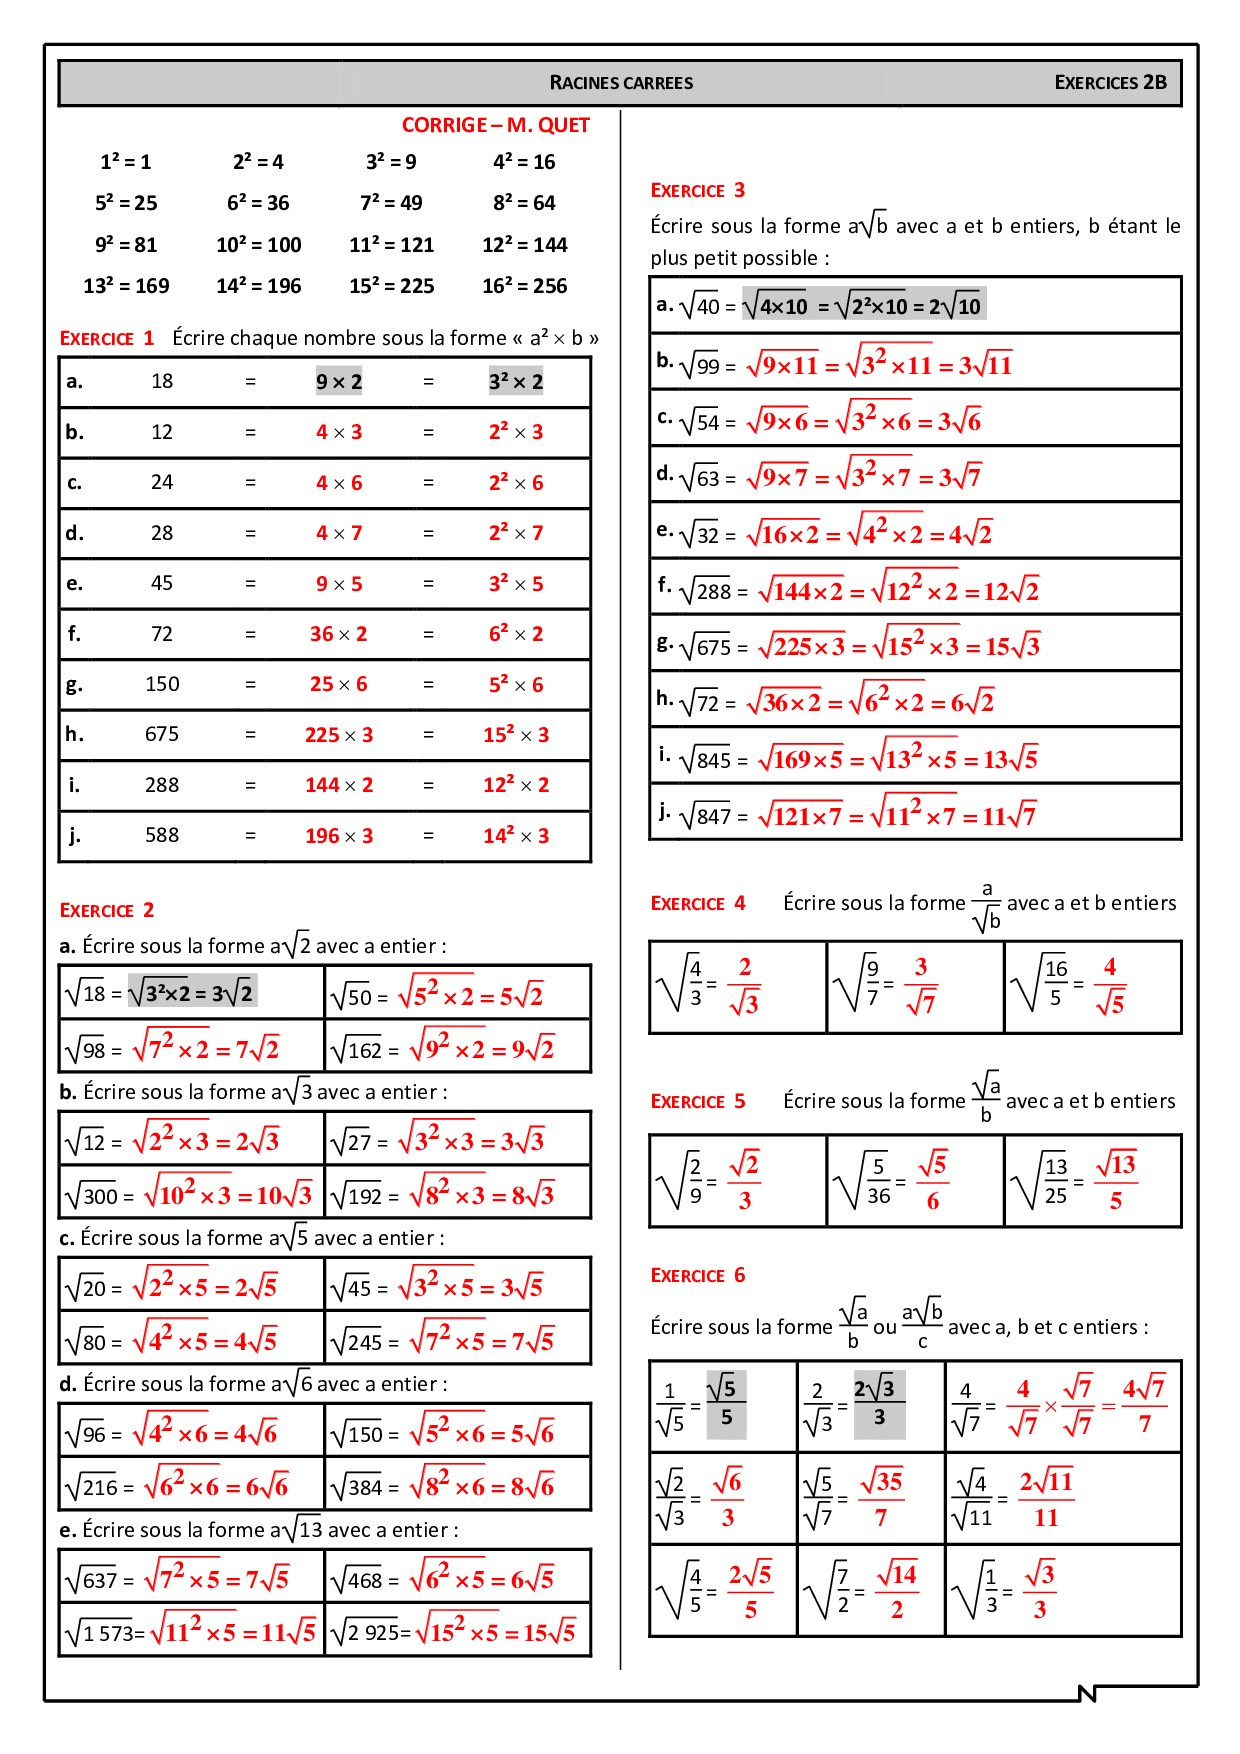 RACINES CARREES EXERCICES 2B
CORRIGE – M. QUET
1² = 1 2² = 4 3² = 9 4² = 16
5² = 25 6² = 36 7² = 49 8² = 64
9² = 81 10² = 100 11² = 121 12² = 144
13² = 169 14² = 196 15² = 225 16² = 256
EXERCICE 1 Écrire chaque nombre sous la forme « a² × b »
a. 18 = 9 × 2 = 3² × 2
b. 12 = 4 × 3 = 2² × 3
c. 24 = 4 × 6 = 2² × 6
d. 28 = 4 × 7 = 2² × 7
e. 45 = 9 × 5 = 3² × 5
f. 72 = 36 × 2 = 6² × 2
g. 150 = 25 × 6 = 5² × 6
h. 675 = 225 × 3 = 15² × 3
i. 288 = 144 × 2 = 12² × 2
j. 588 = 196 × 3 = 14² × 3
EXERCICE 2
a. Écrire sous la forme a√2 avec a entier :
√18 = √(3²×2) = 3√2 √50 = √(5² × 2) = 5√2
√98 = √(7² × 2) = 7√2 √162 = √(9² × 2) = 9√2
b. Écrire sous la forme a√3 avec a entier :
√12 = √(2² × 3) = 2√3 √27 = √(3² × 3) = 3√3
√300 = √(10² × 3) = 10√3 √192 = √(8² × 3) = 8√3
c. Écrire sous la forme a√5 avec a entier :
√20 = √(2² × 5) = 2√5 √45 = √(3² × 5) = 3√5
√80 = √(4² × 5) = 4√5 √245 = √(7² × 5) = 7√5
d. Écrire sous la forme a√6 avec a entier :
√96 = √(4² × 6) = 4√6 √150 = √(5² × 6) = 5√6
√216 = √(6² × 6) = 6√6 √384 = √(8² × 6) = 8√6
e. Écrire sous la forme a√13 avec a entier :
√637 = √(7² × 5) = 7√5 √468 = √(6² × 5) = 6√5
√1 573= √(11² × 5) = 11√5 √2 925= √(15² × 5) = 15√5
EXERCICE 3
Écrire sous la forme a√b avec a et b entiers, b étant le
plus petit possible :
a. √40 = √(4×10) = √(2²×10) = 2√10
b. √99 = √(9×11) = √(3² ×11) = 3√11
c. √54 = √(9×6) = √(3² ×6) = 3√6
d. √63 = √(9×7) = √(3² ×7) = 3√7
e. √32 = √(16×2) = √(4² ×2) = 4√2
f. √288 = √(144×2) = √(12² ×2) = 12√2
g. √675 = √(225×3) = √(15² ×3) = 15√3
h. √72 = √(36×2) = √(6² ×2) = 6√2
i. √845 = √(169×5) = √(13² ×5) = 13√5
j. √847 = √(121×7) = √(11² ×7) = 11√7
EXERCICE 4 Écrire sous la forme a/√b avec a et b entiers
√(4/3) = 2/√3 √(9/7) = 3/√7 √(16/5) = 4/√5
EXERCICE 5 Écrire sous la forme √a/b avec a et b entiers
√(2/9) = √2/3 √(5/36) = √5/6 √(13/25) = √13/5
EXERCICE 6
Écrire sous la forme √a/b ou a√b/c avec a, b et c entiers :
1/√5 = √5/5 2/√3 = 2√3/3 4/√7 = 4/√7 × √7/√7 = 4√7/7
√2/√3 = √6/3 √5/√7 = √35/7 √4/√11 = 2√11/11
√(4/5) = 2√5/5 √(7/2) = √14/2 √(1/3) = √3/3